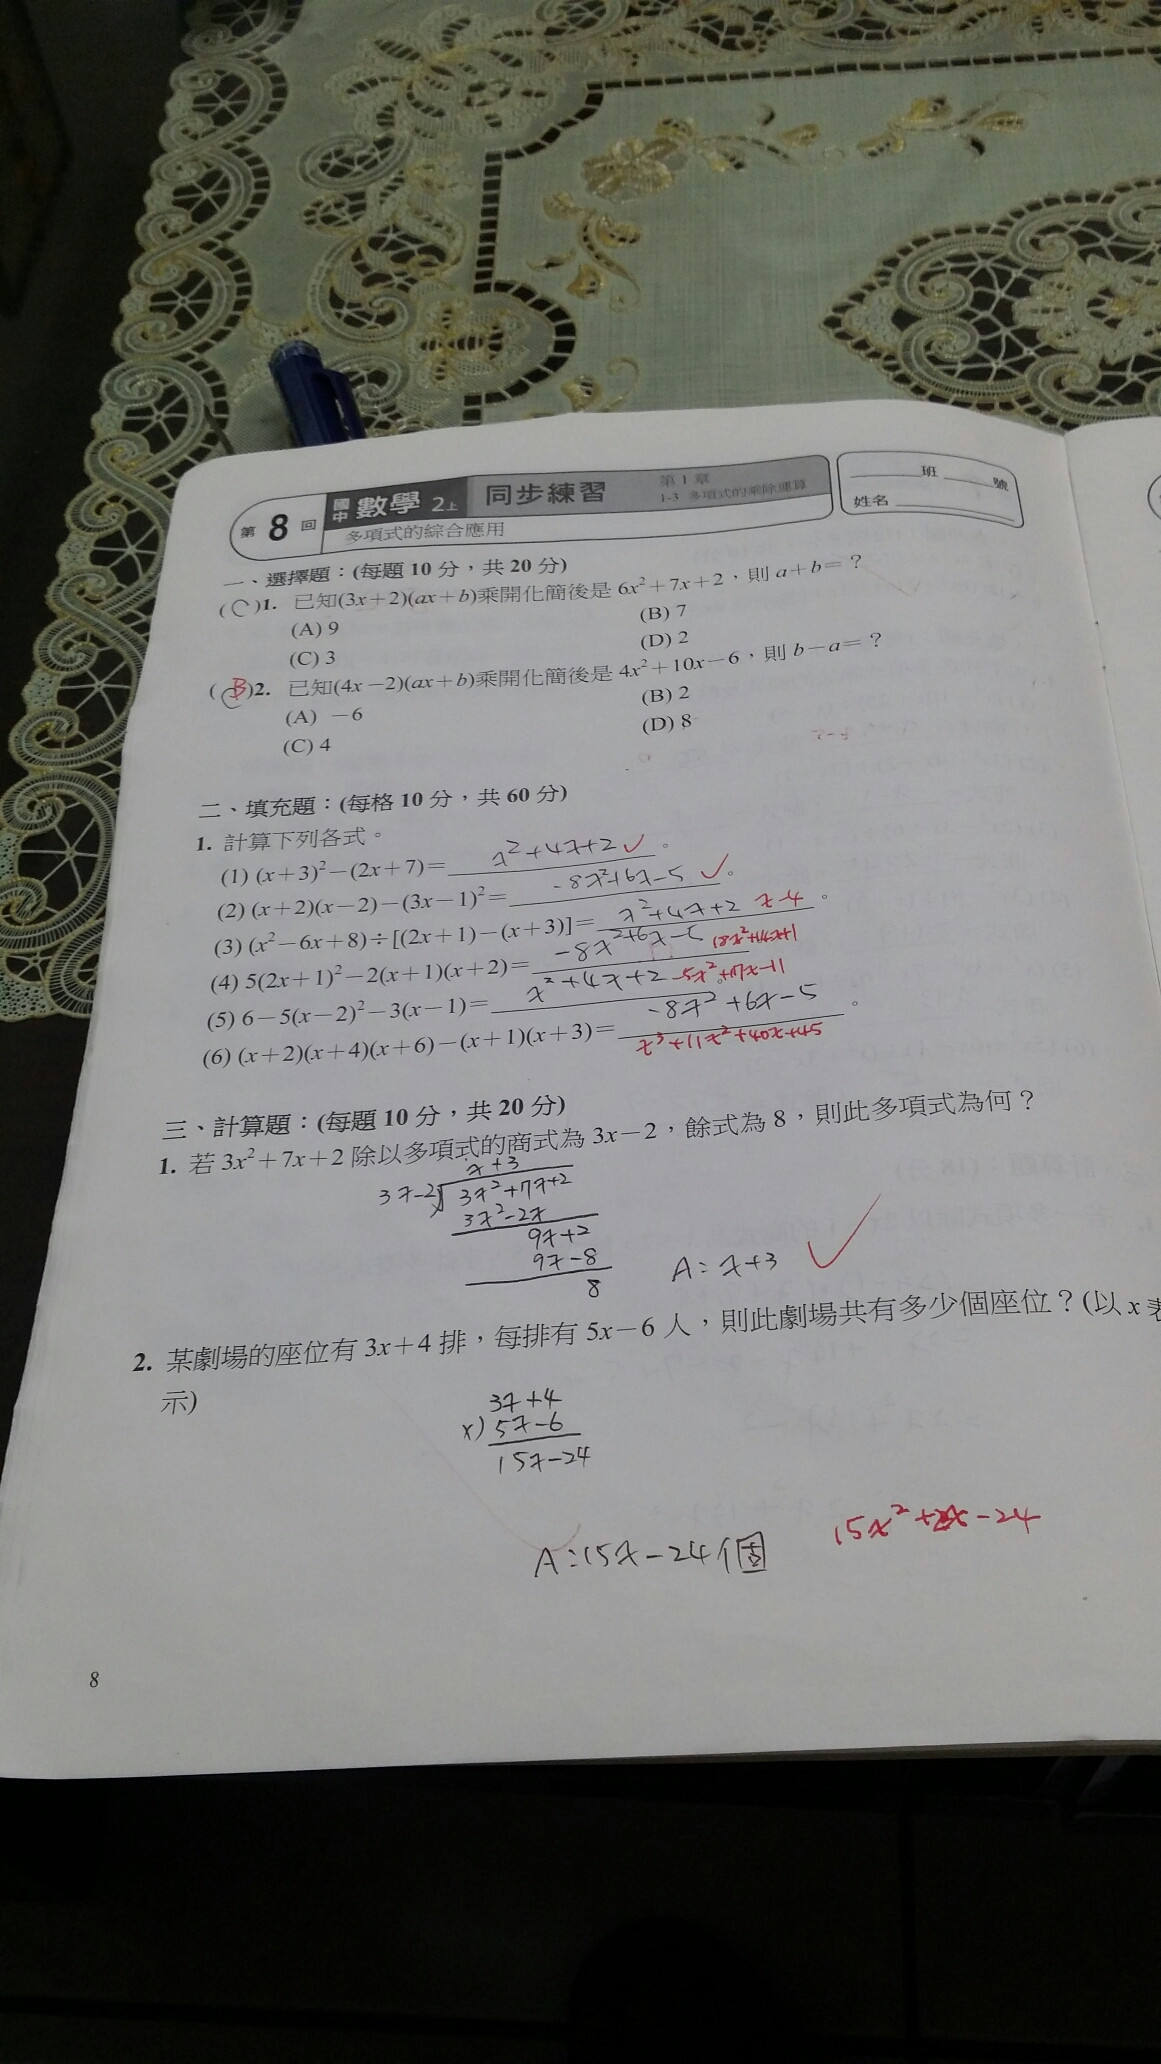 第8回 國中 數學 2上 同步練習 第1章 1-3 多項式的乘除運算
多項式的綜合應用
班 號
姓名
一、選擇題：(每題10分，共20分)
(C)1. 已知(3x+2)(ax+b)乘開化簡後是6x²+7x+2，則a+b=？
(A) 9 (B) 7
(C) 3 (D) 2
(B)2. 已知(4x-2)(ax+b)乘開化簡後是4x²+10x-6，則b-a=？
(A) -6 (B) 2
(C) 4 (D) 8
二、填充題：(每格10分，共60分)
1. 計算下列各式。
(1) (x+3)²-(2x+7)= x²+4x+2 ✓。
(2) (x+2)(x-2)-(3x-1)²= -8x²+6x-5 ✓。
(3) (x²-6x+8)÷[(2x+1)-(x+3)]= x²+4x+2 x-4。
(4) 5(2x+1)²-2(x+1)(x+2)= -8x²+6x-5 18x²+14x+1
(5) 6-5(x-2)²-3(x-1)= x²+4x+2 -5x²+17x-11。
(6) (x+2)(x+4)(x+6)-(x+1)(x+3)= -8x²+6x-5。
x³+11x²+40x+45
三、計算題：(每題10分，共20分)
1. 若3x²+7x+2除以多項式的商式為3x-2，餘式為8，則此多項式為何？
x+3
3x-2 3x²+7x+2
3x²-2x
9x+2
9x-8
8
A: x+3 ✓
2. 某劇場的座位有3x+4排，每排有5x-6人，則此劇場共有多少個座位？(以x表
示)
3x+4
x) 5x-6
15x-24
A:15x-24個
15x²+2x-24
8